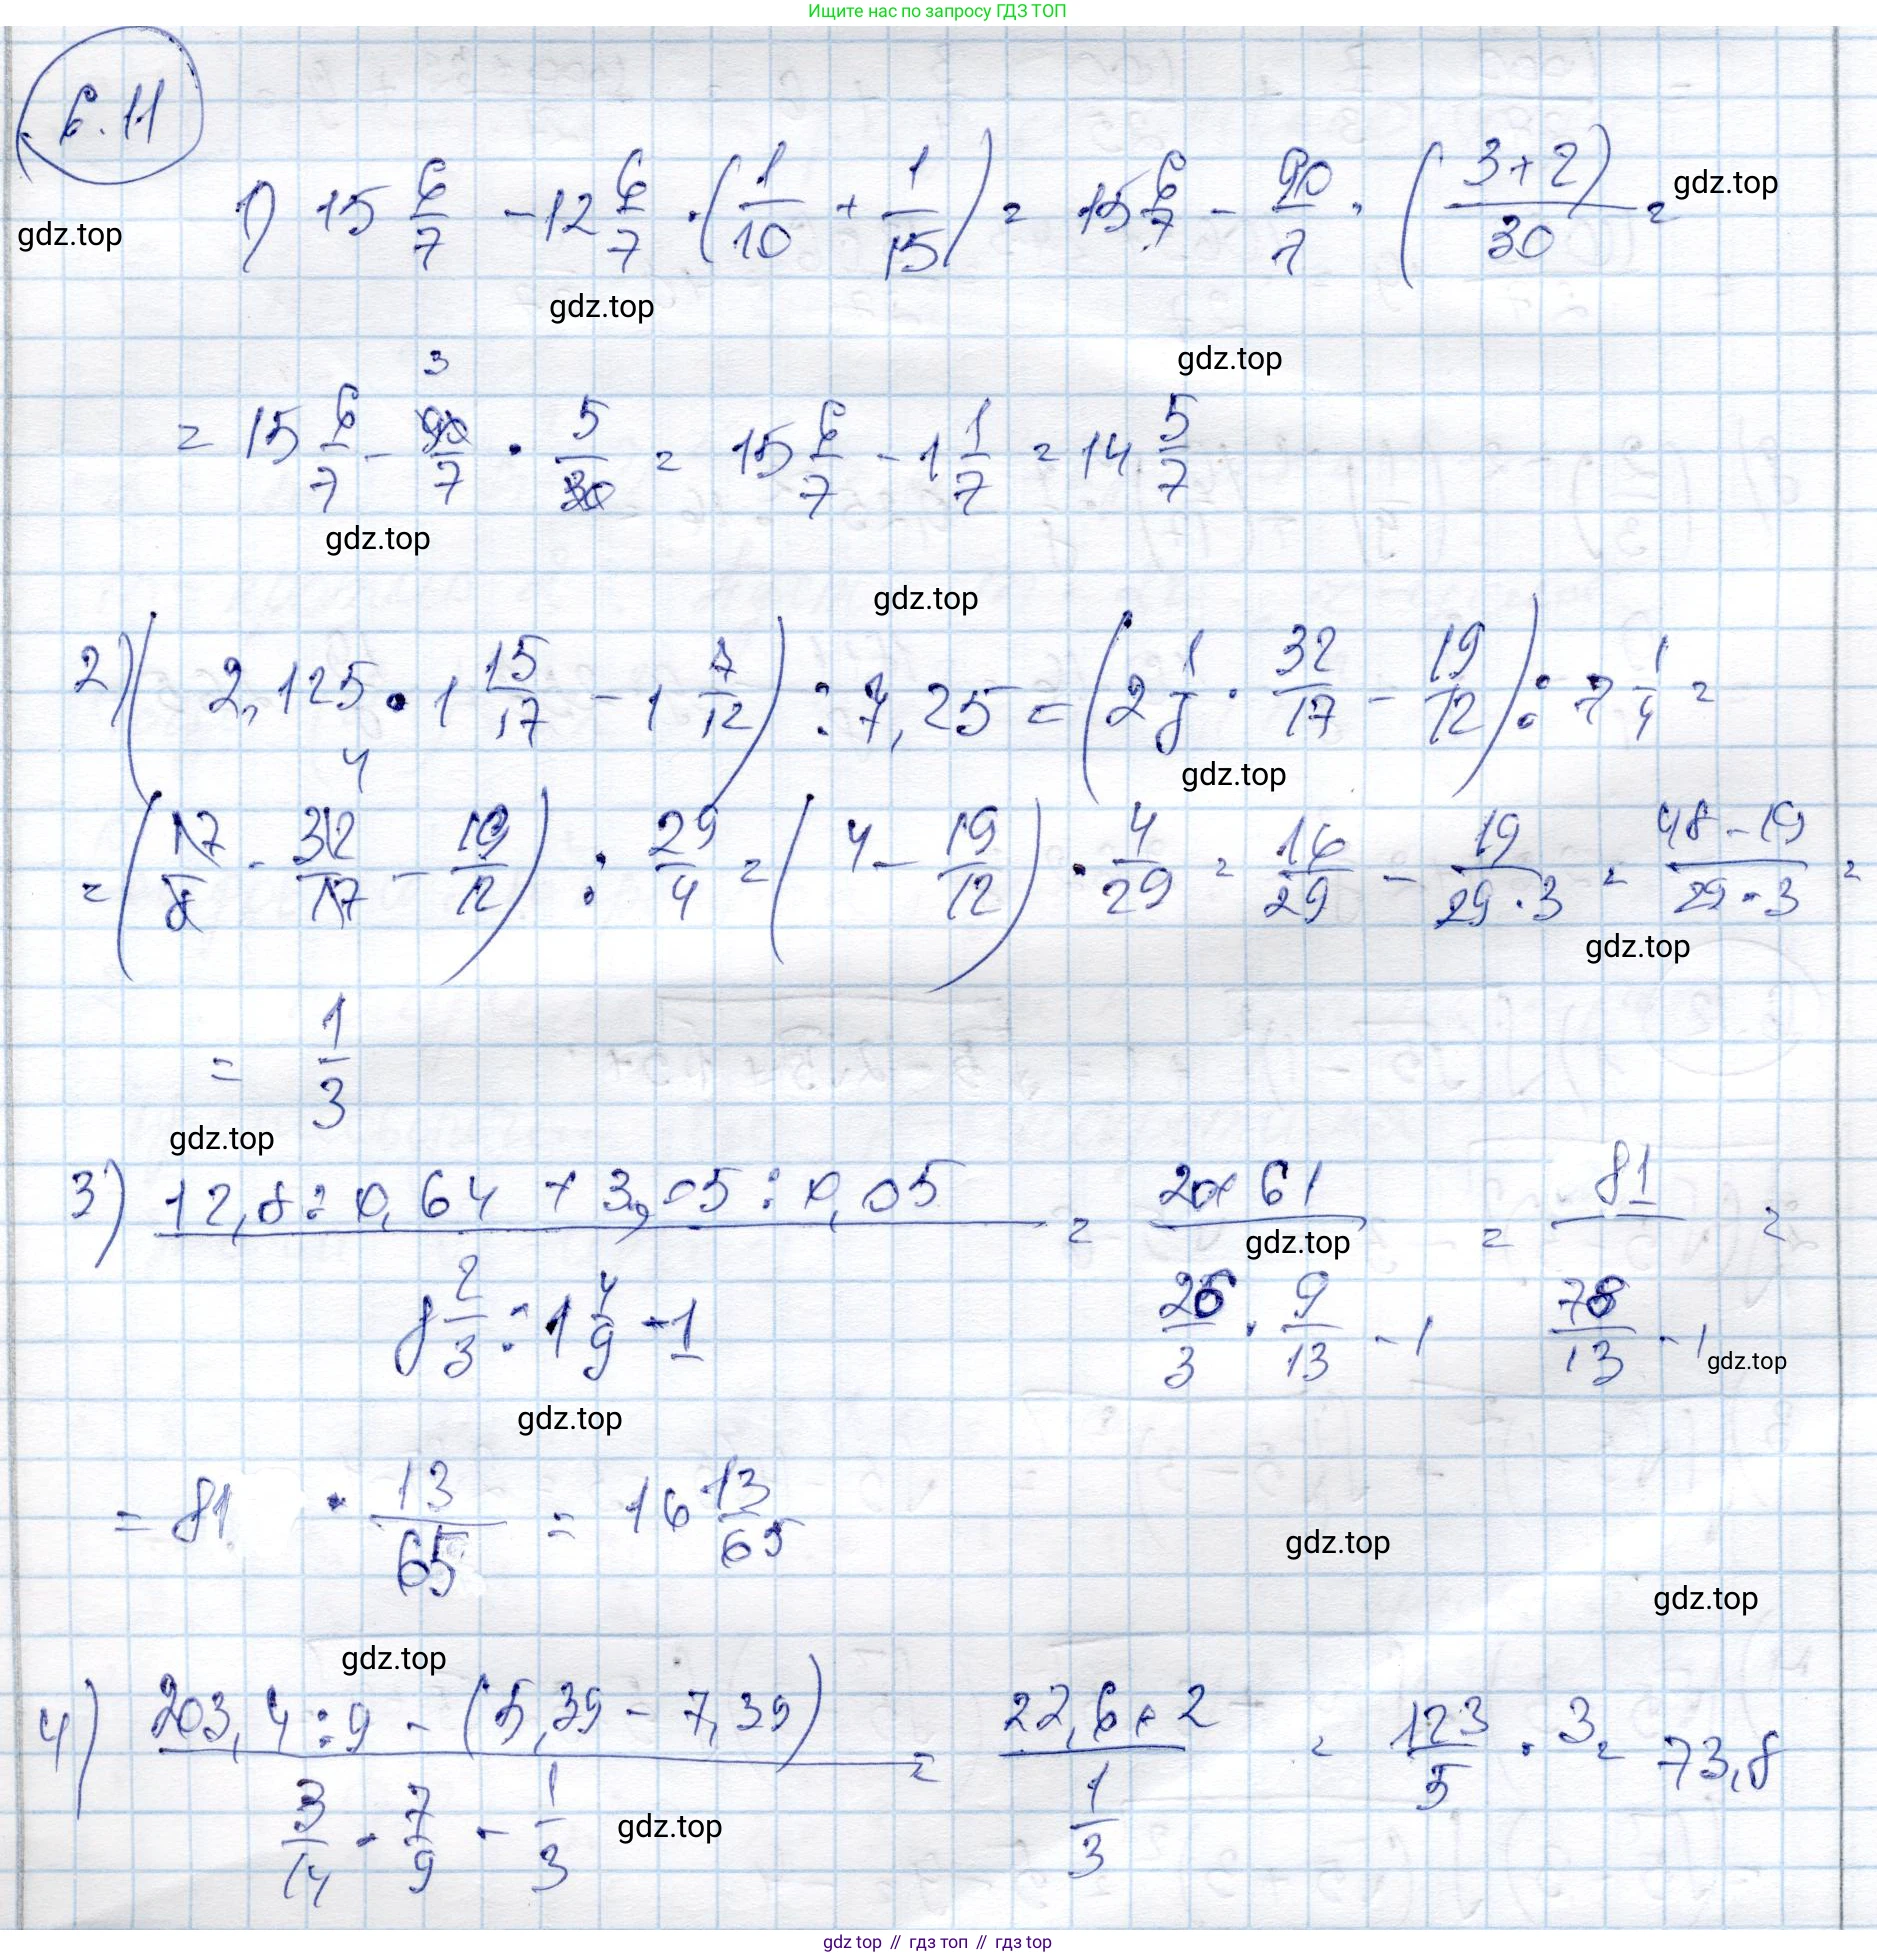 Ищите нас по запросу ГДЗ ТОП
6.11
1) 15 6/7 - 12 6/7 · (1/10 + 1/15) = 15 6/7 - 90/7 · ((3+2)/30) =
gdz.top
gdz.top
gdz.top
gdz.top
= 15 6/7 - 90/7 · 5/30 = 15 6/7 - 1 1/7 = 14 5/7
3
gdz.top
gdz.top
2) (2,125 · 1 15/17 - 1 7/12) : 7,25 = (2 1/8 · 32/17 - 19/12) : 7 1/4 =
4
gdz.top
= (17/8 · 32/17 - 19/12) : 29/4 = (4 - 19/12) · 4/29 = 16/29 - 19/(29·3) = (48-19)/(29·3) =
gdz.top
= 1/3
gdz.top
3) (12,8 : 0,64 + 3,05 : 0,05)/(8 2/3 : 1 4/9 - 1) = (20+61)/(26/3 · 9/13 - 1) = 81/(78/13 - 1) =
gdz.top
gdz.top
gdz.top
= 81 · 13/65 = 16 13/65
gdz.top
gdz.top
gdz.top
4) (203,4 : 9 - (5,39 - 7,39))/(3/14 · 7/9 - 1/3) = (22,6 + 2)/(1/3) = 123/5 · 3 = 73,8
gdz.top
gdz top // гдз топ // гдз top